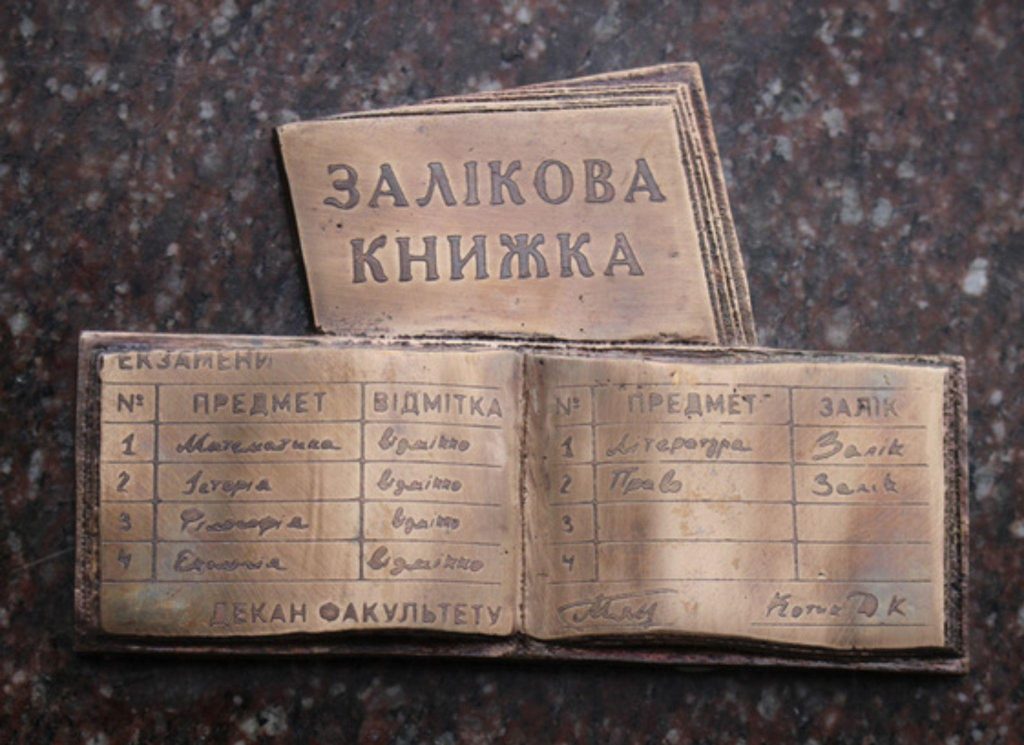 ЗАЛІКОВА
КНИЖКА
ЕКЗАМЕНИ
№ ПРЕДМЕТ ВІДМІТКА
1 Математика відмінно
2 Історія відмінно
3 Філософія відмінно
4 відмінно
ДЕКАН ФАКУЛЬТЕТУ
№ ПРЕДМЕТ ЗАЛІК
1 Література Залік
2 Право Залік
3
4